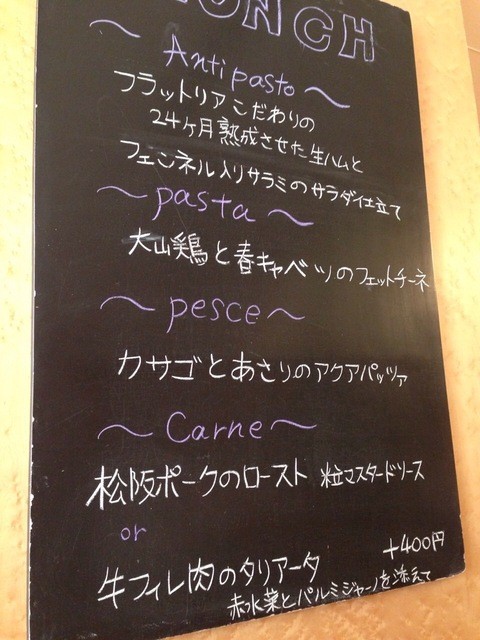 LUNCH
～ Antipasto ～
フラットリアこだわりの
24ヶ月熟成させた生ハムと
フェンネル入りサラミのサラダ仕立て
～pasta～
大山鶏と春キャベツのフェットチーネ
～pesce～
カサゴとあさりのアクアパッツァ
～Carne～
松阪ポークのロースト 粒マスタードソース
or
牛フィレ肉のタリアータ +400円
赤水菜とパルミジャーノを添えて